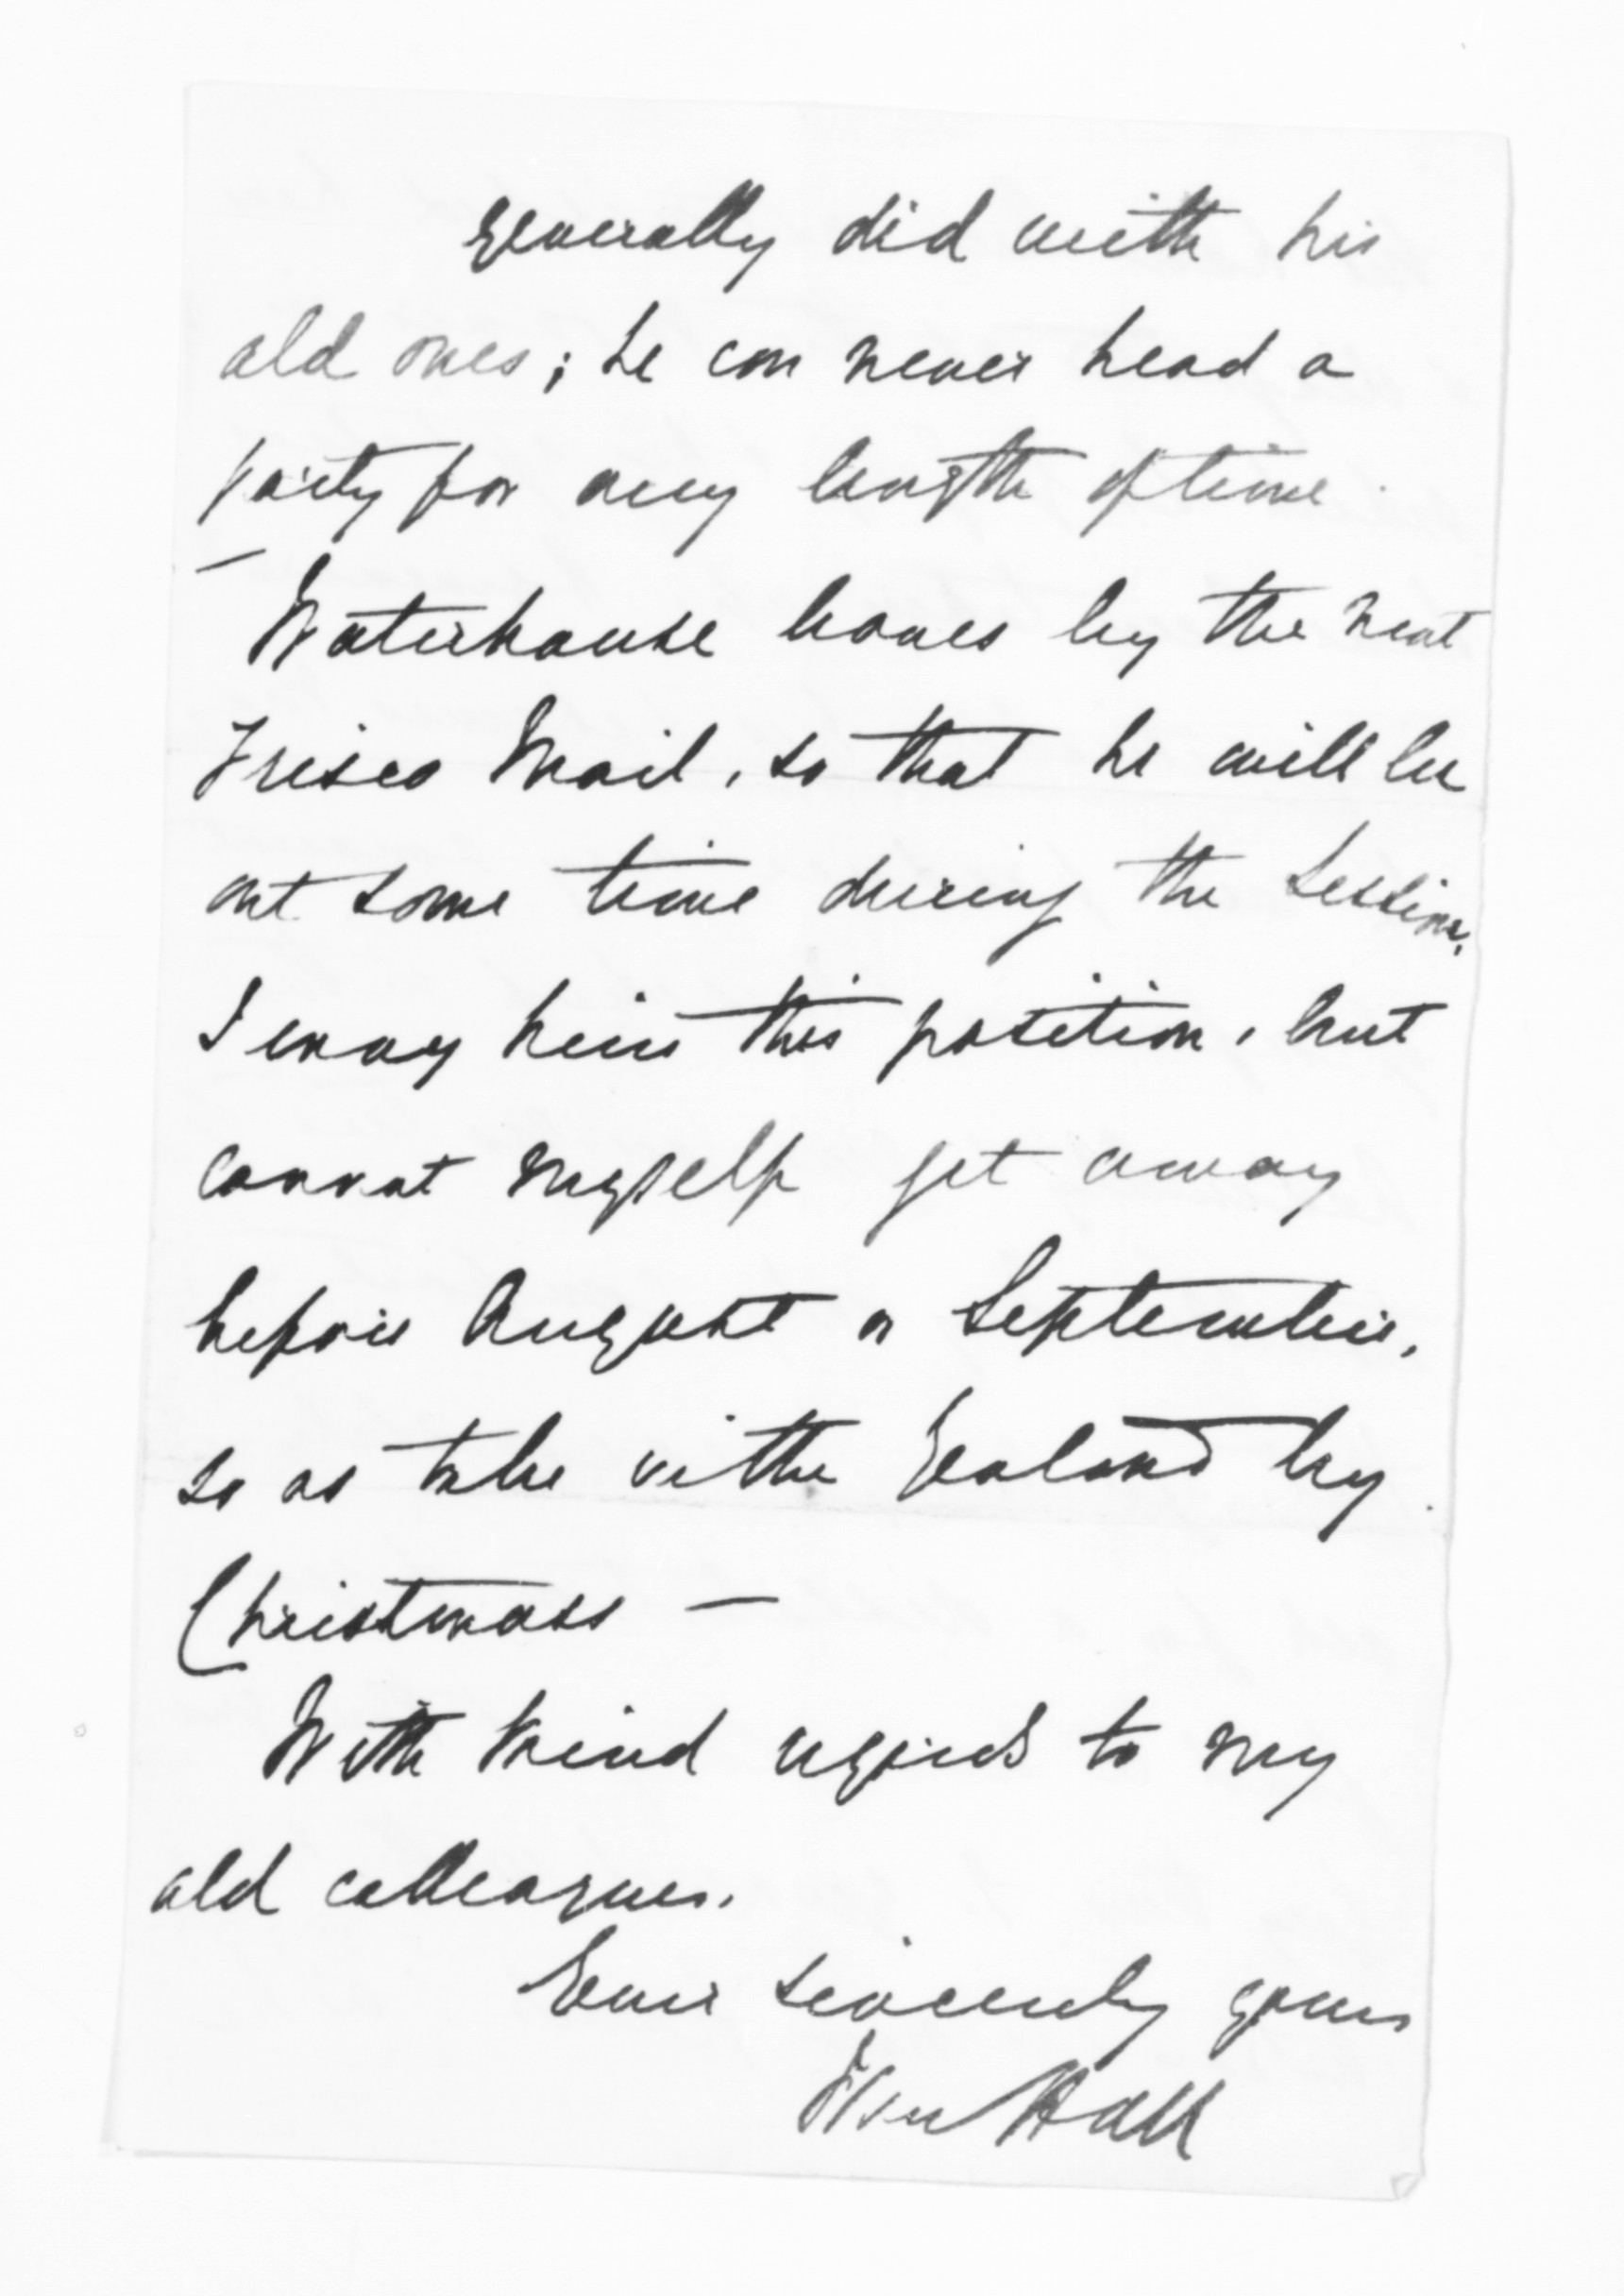 generally did with his
old ones; he can never head a
party for any length of time.
— Waterhouse leaves by the next
Frisco Mail, so that he will be
out some time during the Session.
I envy him this position, but
cannot myself get away
before August or September,
so as to be in the Zealand by
Christmass —
With kind regards to my
old colleagues.
Ever sincerely yours
Hall